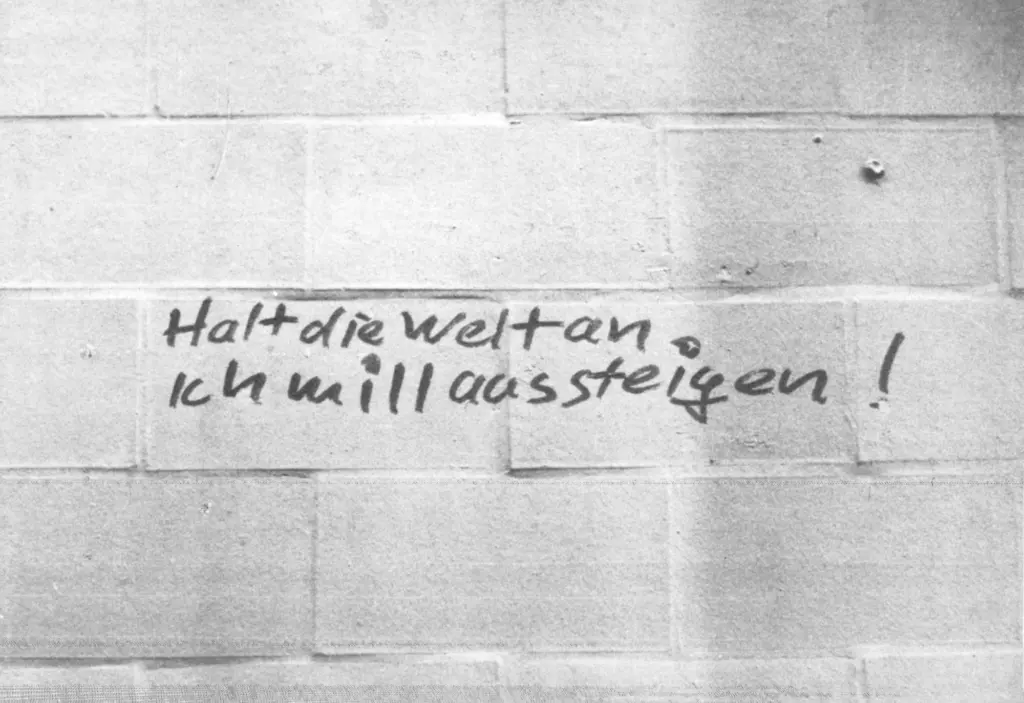 Halt die Welt an
Ich will aussteigen !